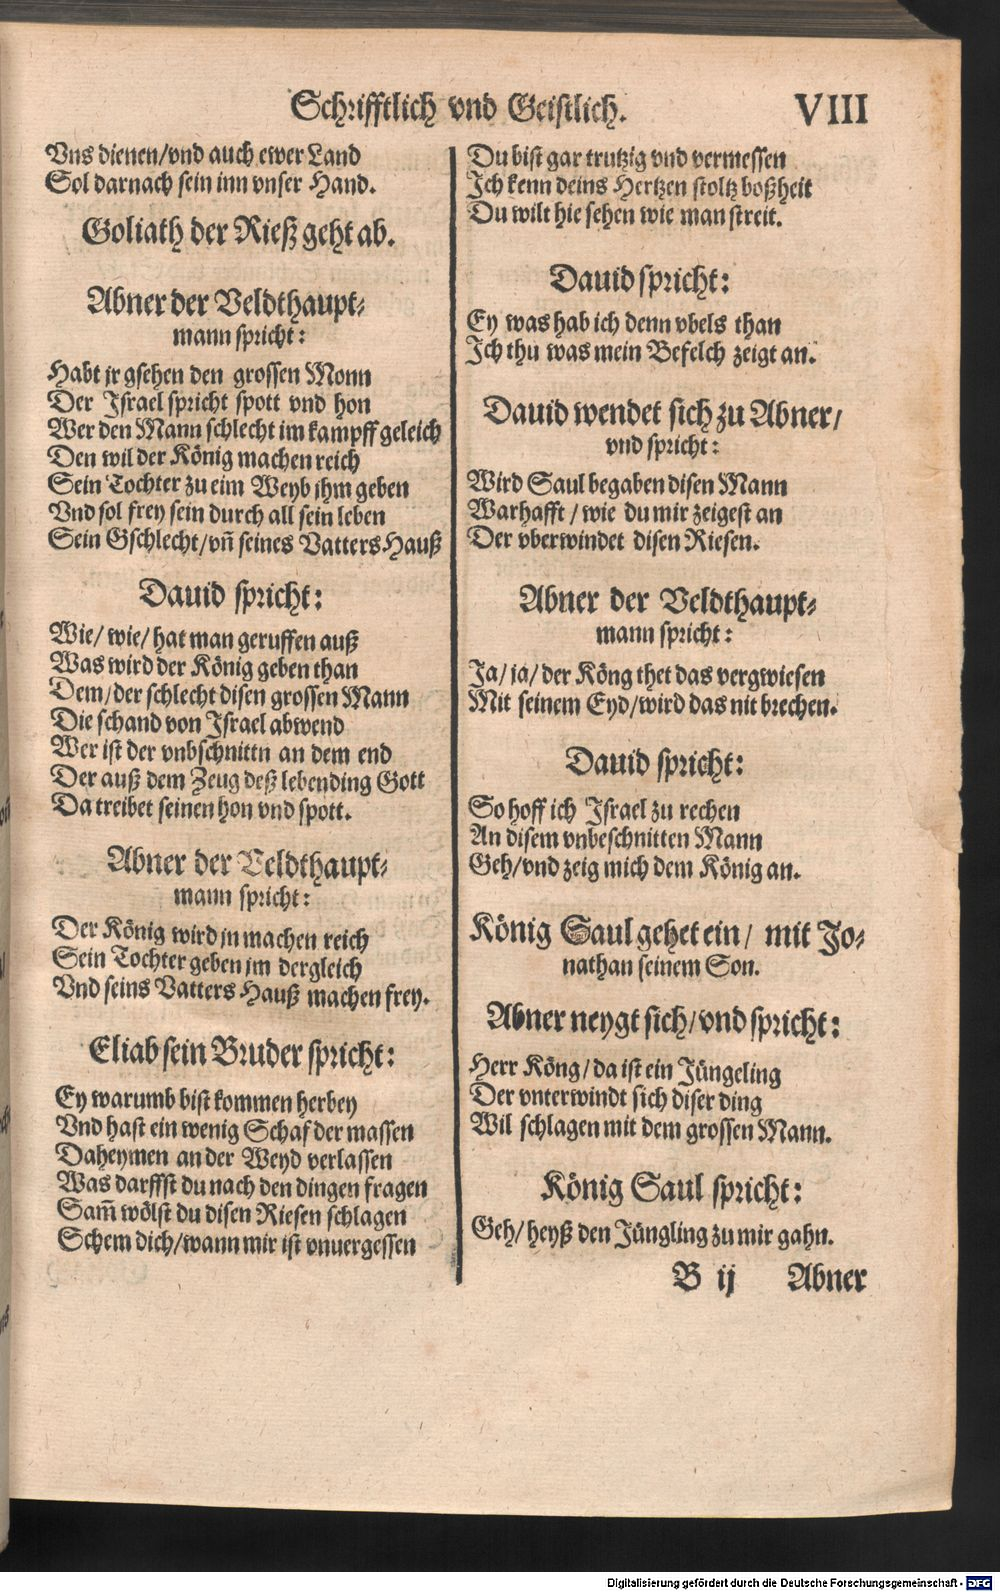 Schrifftlich vnd Geistlich. VIII
Vns dienen/vnd auch ewer Land
Sol darnach sein inn vnser Hand.
Goliath der Rieß geht ab.
Abner der Veldthaupt-
mann spricht:
Habt jr gsehen den grossen Monn
Der Israel spricht spott vnd hon
Wer den Mann schlecht im kampff geleich
Den wil der König machen reich
Sein Tochter zu eim Weyb jhm geben
Vnd sol frey sein durch all sein leben
Sein Gschlecht/vñ seines Vatters Hauß
Dauid spricht:
Wie/ wie/ hat man geruffen auß
Was wird der König geben than
Dem/der schlecht disen grossen Mann
Die schand von Israel abwend
Wer ist der vnbschnittn an dem end
Der auß dem Zeug deß lebending Gott
Da treibet seinen hon vnd spott.
Abner der Veldthaupt-
mann spricht:
Der König wird jn machen reich
Sein Tochter geben jm dergleich
Vnd seins Vatters Hauß machen frey.
Eliab sein Bruder spricht:
Ey warumb bist kommen herbey
Vnd hast ein wenig Schaf der massen
Daheymen an der Weyd verlassen
Was darffst du nach den dingen fragen
Sam̃ wölst du disen Riesen schlagen
Schem dich/wann mir ist vnuergessen
Du bist gar trutzig vnd vermessen
Ich kenn deins Hertzen stoltz boßheit
Du wilt hie sehen wie man streit.
Dauid spricht:
Ey was hab ich denn vbels than
Ich thu was mein Befelch zeigt an.
Dauid wendet sich zu Abner/
vnd spricht:
Wird Saul begaben disen Mann
Warhafft / wie du mir zeigest an
Der vberwindet disen Riesen.
Abner der Veldthaupt-
mann spricht:
Ja/ ja/ der Köng thet das vergwiesen
Mit seinem Eyd/wird das nit brechen.
Dauid spricht:
So hoff ich Israel zu rechen
An disem vnbeschnitten Mann
Geh/vnd zeig mich dem König an.
König Saul gehet ein/ mit Jo-
nathan seinem Son.
Abner neygt sich/vnd spricht:
Herr Köng/ da ist ein Jüngeling
Der vnterwindt sich diser ding
Wil schlagen mit dem grossen Mann.
König Saul spricht:
Geh/ heyß den Jüngling zu mir gahn.
B ij Abner
Digitalisierung gefördert durch die Deutsche Forschungsgemeinschaft - DFG